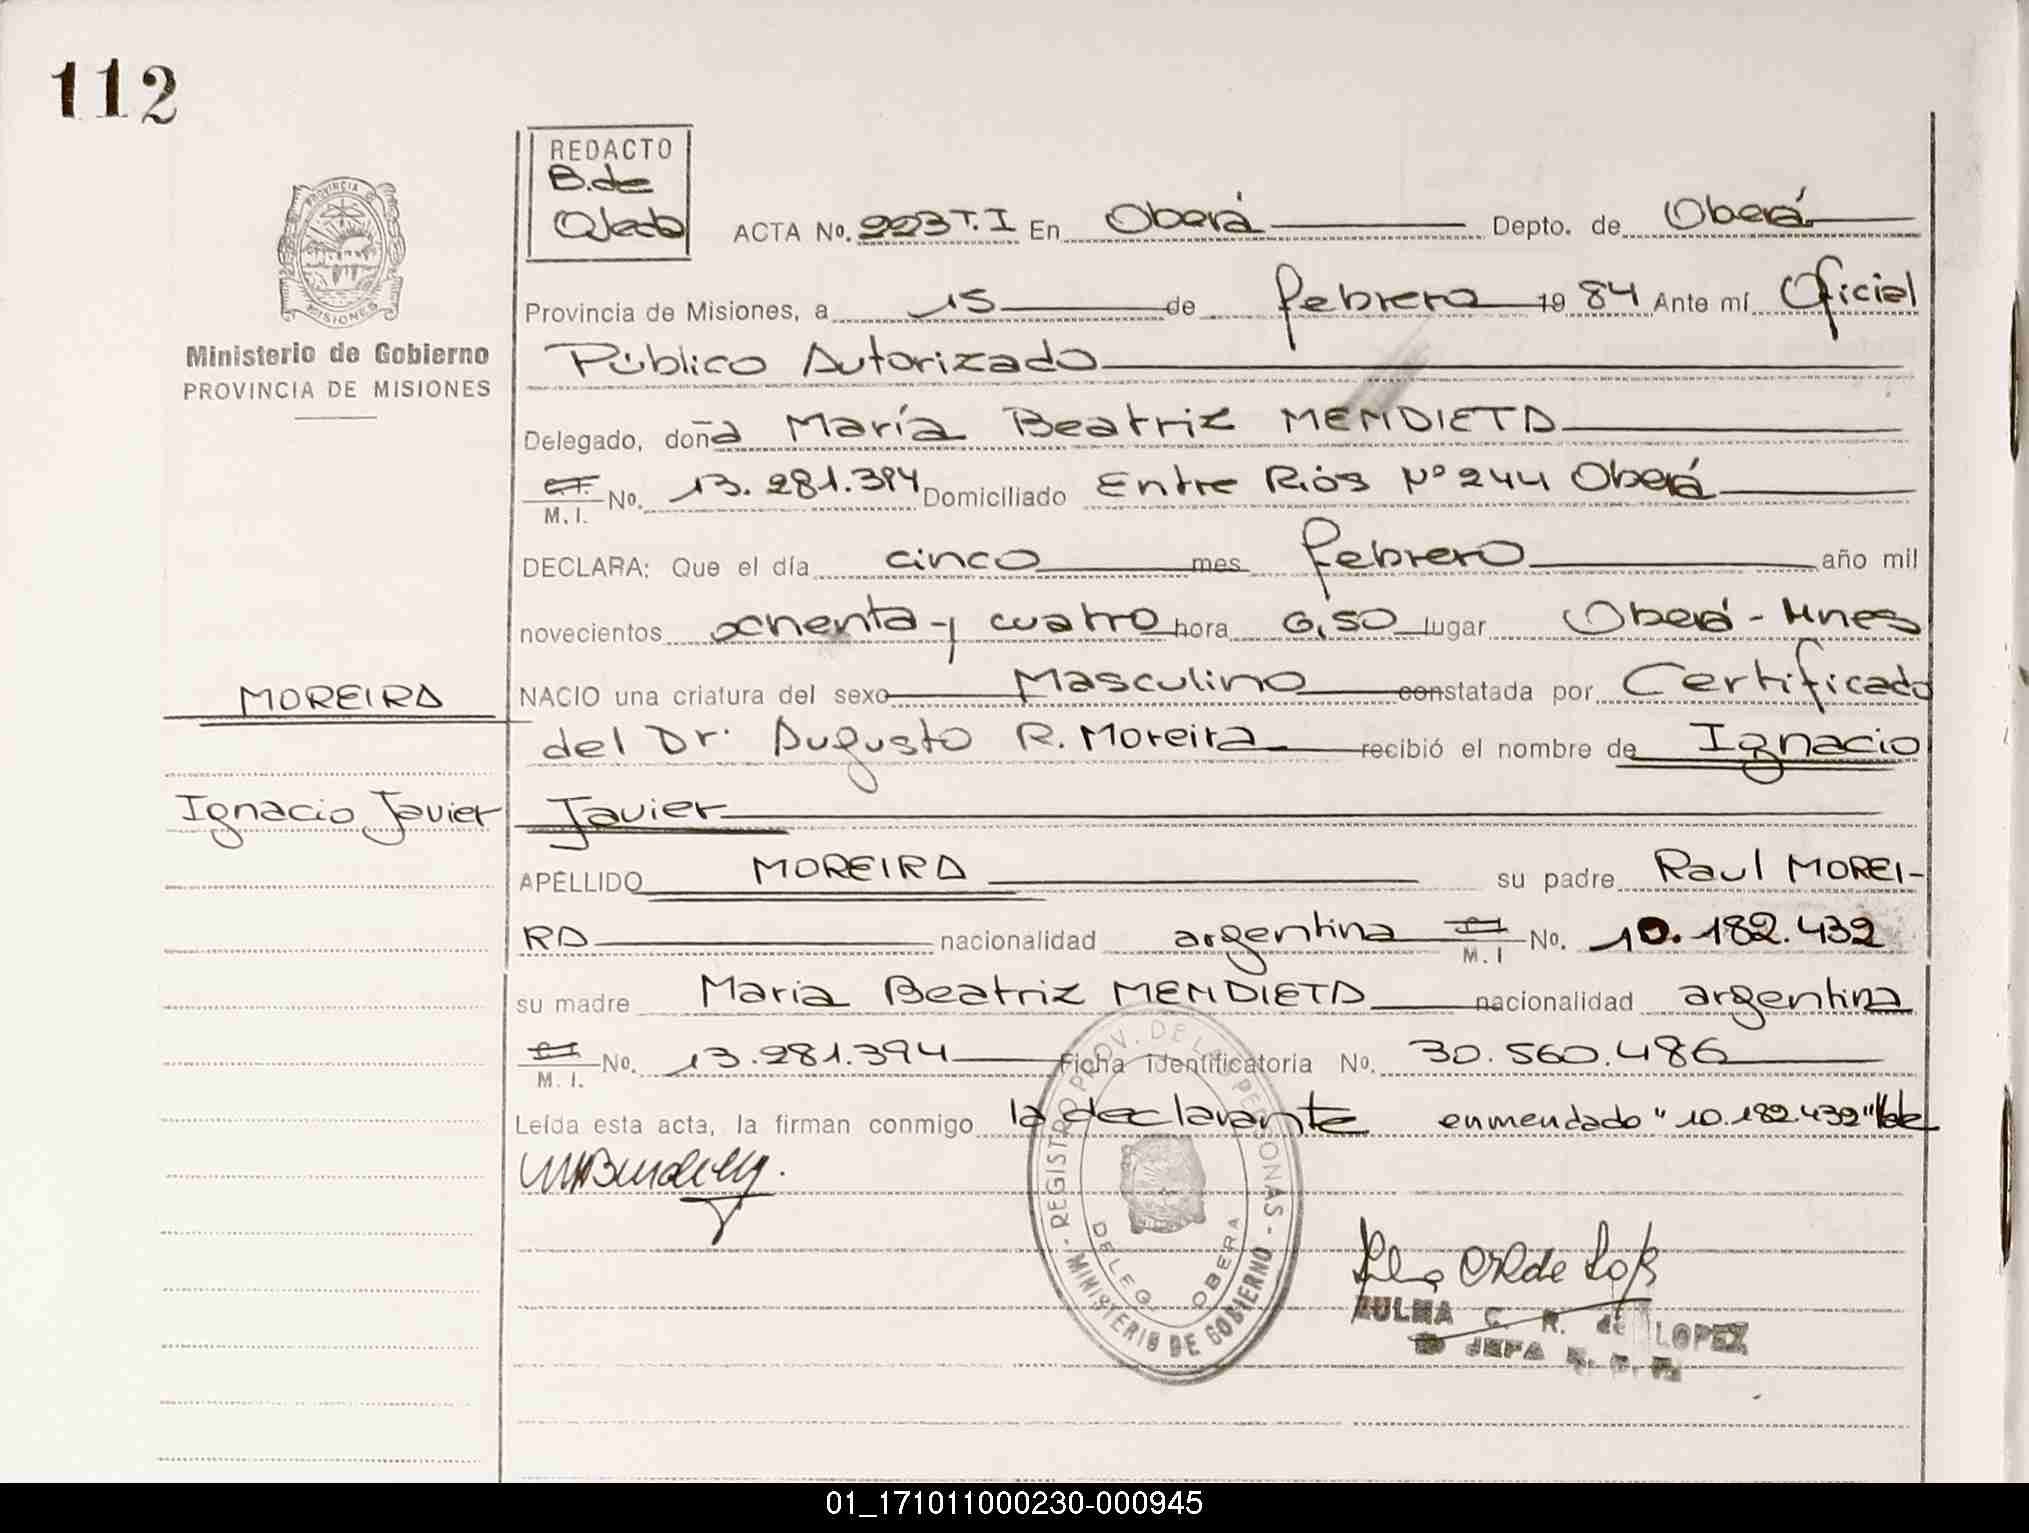 112
REDACTO
B. de
Ojeda
ACTA No. 223 T. I En Oberá Depto. de Oberá
PROVINCIA
MISIONES
Provincia de Misiones, a 15 de febrero 19 84 Ante mí Oficial
Ministerio de Gobierno
PROVINCIA DE MISIONES
Público Autorizado
Delegado, doña María Beatriz MENDIETA
C.I. No. 13.281.394 Domiciliado Entre Ríos Nº 244 Oberá
M. I.
DECLARA: Que el día cinco mes febrero año mil
novecientos ochenta y cuatro hora 6,50 lugar Oberá - Mnes
MOREIRA
NACIO una criatura del sexo Masculino constatada por Certificado
del Dr. Augusto R. Moreira recibió el nombre de Ignacio
Ignacio Javier
Javier
APELLIDO MOREIRA su padre Raul MOREI-
RA nacionalidad argentina C.I. No. 10.182.432
M. I
su madre Maria Beatriz MENDIETA nacionalidad argentina
C.I. No. 13.281.394 Ficha identificatoria No. 30.560.486
M. I.
Leída esta acta, la firman conmigo la declarante enmendado "10.182.432" Vale
- REGISTRO PROV. DE LAS PERSONAS -
DELEG. OBERA
MINISTERIO DE GOBIERNO
ZULMA C. R. de LOPEZ
JEFA
01_171011000230-000945